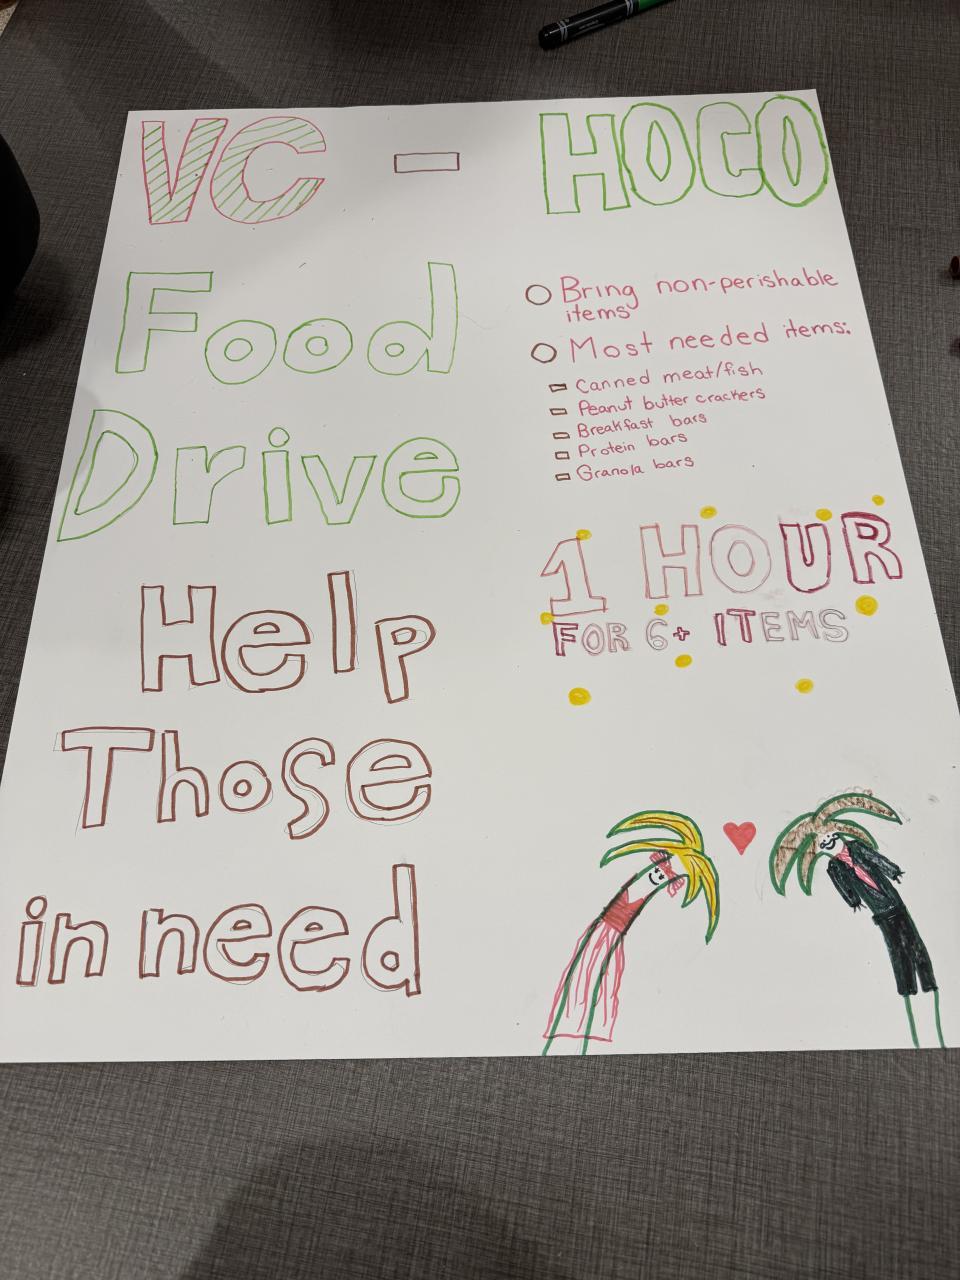 VC - HOCO
Food
Drive
Help
Those
in need
Bring non-perishable
items
Most needed items:
Canned meat/fish
Peanut butter crackers
Breakfast bars
Protein bars
Granola bars
1 HOUR
FOR 6+ ITEMS